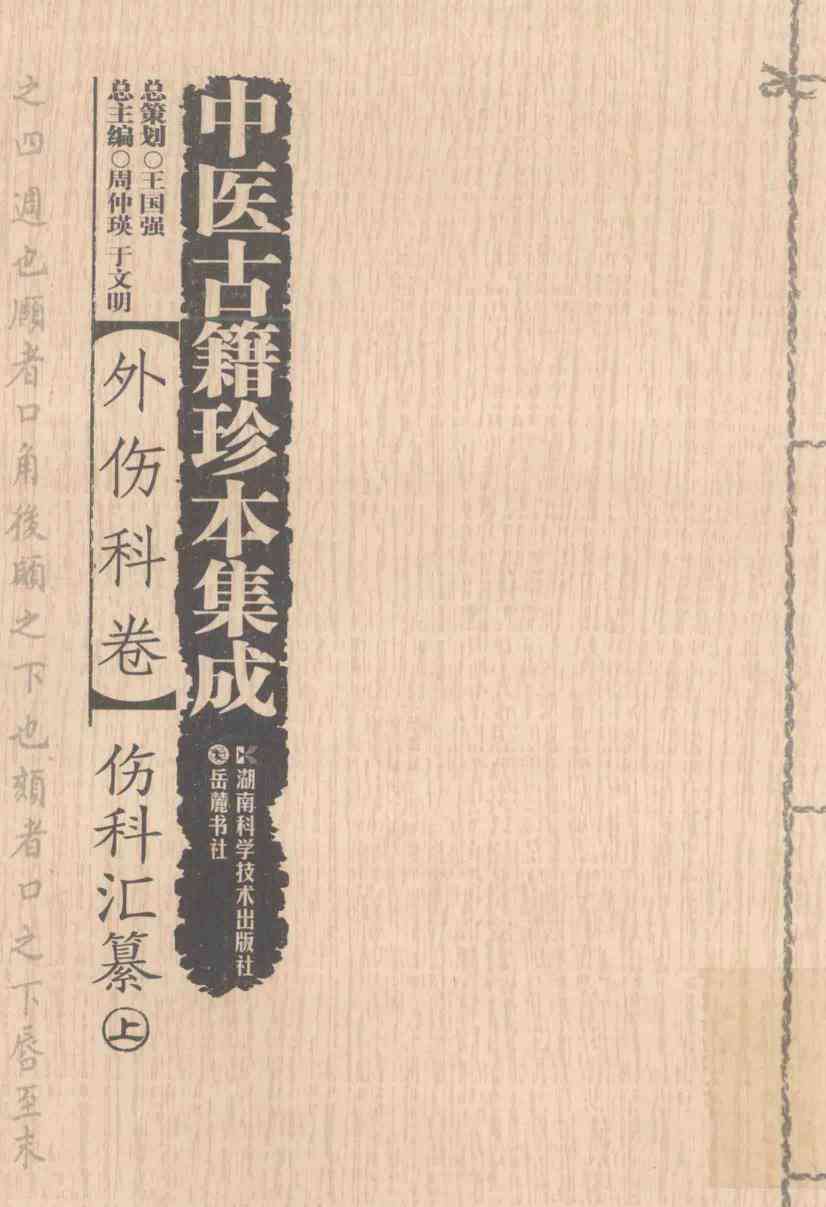 中医古籍珍本集成
湖南科学技术出版社
岳麓书社
总策划○王国强
总主编○周仲瑛 于文明
【外伤科卷】
伤科汇纂 上
之四週也頋者口角後頋之下也頦者口之下唇至末